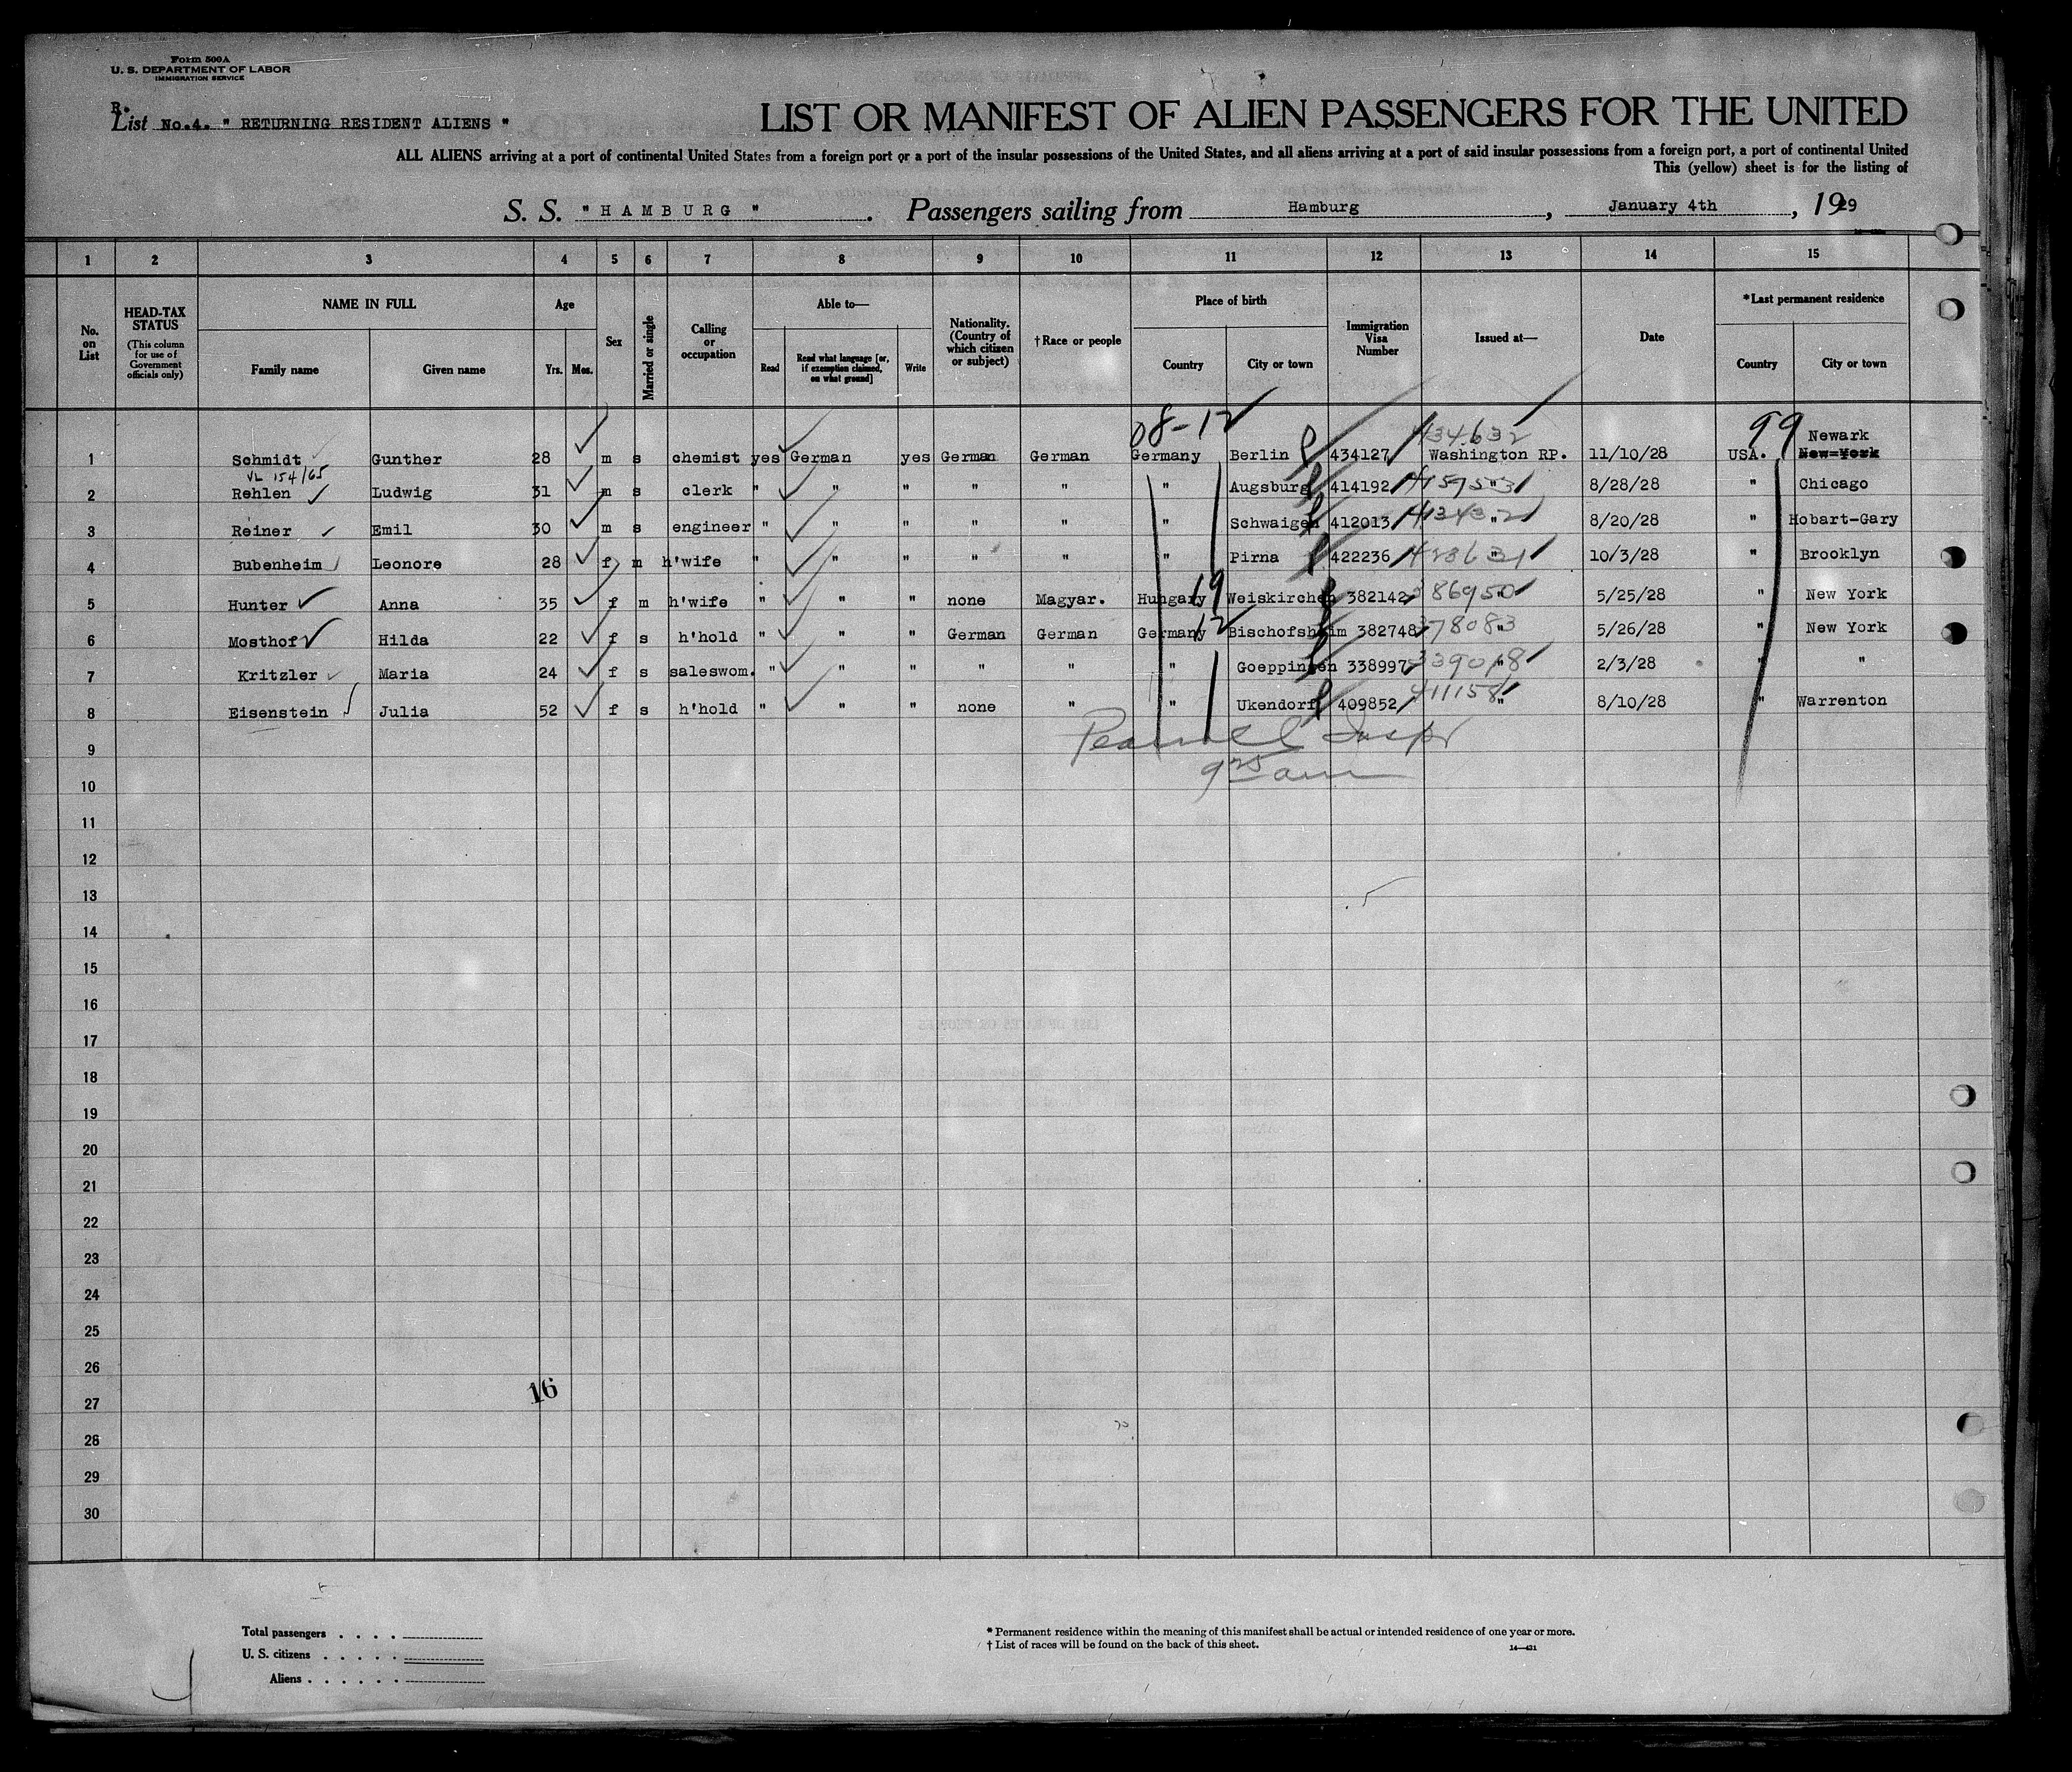 Form 500A
U. S. DEPARTMENT OF LABOR
IMMIGRATION SERVICE
R.
List No.4. " RETURNING RESIDENT ALIENS "
LIST OR MANIFEST OF ALIEN PASSENGERS FOR THE UNITED
ALL ALIENS arriving at a port of continental United States from a foreign port or a port of the insular possessions of the United States, and all aliens arriving at a port of said insular possessions from a foreign port, a port of continental United
This (yellow) sheet is for the listing of
S. S. " H A M B U R G " . Passengers sailing from Hamburg , January 4th , 1929
1 2 3 4 5 6 7 8 9 10 11 12 13 14 15
No. on List
HEAD-TAX STATUS (This column for use of Government officials only)
NAME IN FULL
Family name Given name
Age
Yrs. Mos.
Sex
Married or single
Calling or occupation
Able to—
Read Read what language [or, if exemption claimed, on what ground] Write
Nationality. (Country of which citizen or subject)
† Race or people
Place of birth
Country City or town
Immigration Visa Number
Issued at—
Date
*Last permanent residence
Country City or town
08-12 434632 99 Newark
1 Schmidt Gunther 28 m s chemist yes German yes German German Germany Berlin 434127 Washington RP. 11/10/28 USA. New-York
VL 154/65
2 Rehlen Ludwig 31 m s clerk " " " " " " Augsburg 414192 " 8/28/28 " Chicago
3 Reiner Emil 30 m s engineer " " " " " " Schwaigen 412013 " 8/20/28 " Hobart-Gary
4 Bubenheim Leonore 28 f m h'wife " " " " " " Pirna 422236 " 10/3/28 " Brooklyn
5 Hunter Anna 35 f m h'wife " " " none Magyar. Hungary 19 Weiskirchen 382142 386950 " 5/25/28 " New York
6 Mosthof Hilda 22 f s h'hold " " " German German Germany 12 Bischofsheim 382748 378083 " 5/26/28 " New York
7 Kritzler Maria 24 f s saleswom. " " " " " " Goeppingen 338997 339018 " 2/3/28 " "
8 Eisenstein Julia 52 f s h'hold " " " none " " Ukendorf 409852 411158 " 8/10/28 " Warrenton
9 Inspr
10 9 25 am
11
12
13
14
15
16
17
18
19
20
21
22
23
24
25
26
16
27
28
29
30
Total passengers . . . .
U. S. citizens . . . . .
Aliens . . . . . .
* Permanent residence within the meaning of this manifest shall be actual or intended residence of one year or more.
† List of races will be found on the back of this sheet.
14—431